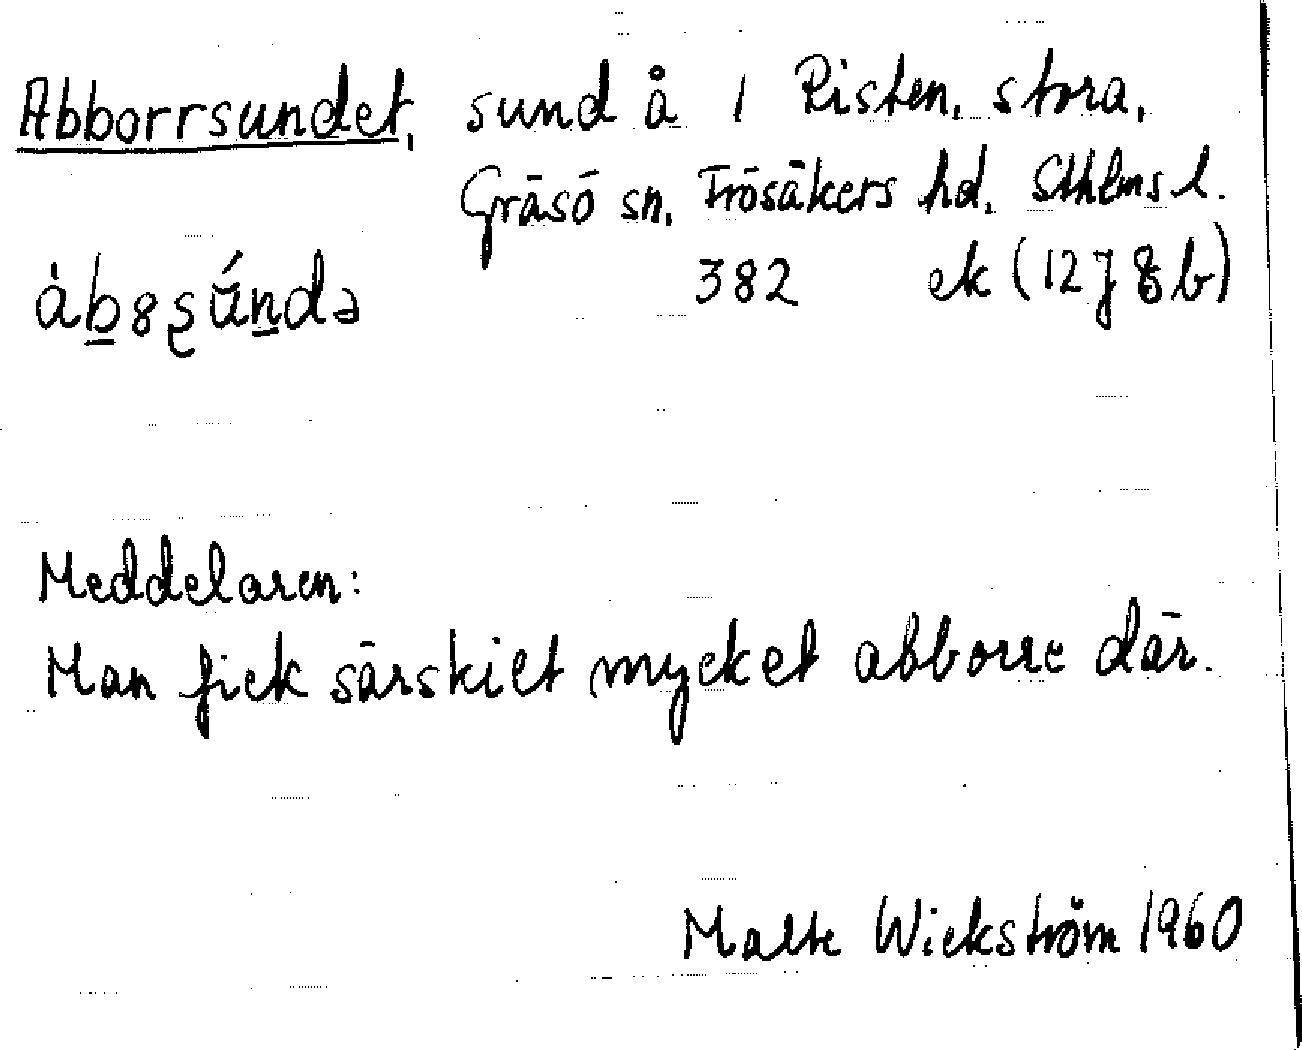 Abborrsundet, sund å 1 Risten, stora,
Gräsö sn, Frösåkers hd, Sthlms l.
àb̲8ʂǘn̲də 382 ek (12J8b)
Meddelaren:
Man fick särskilt mycket abborre där.
Malte Wickström 1960